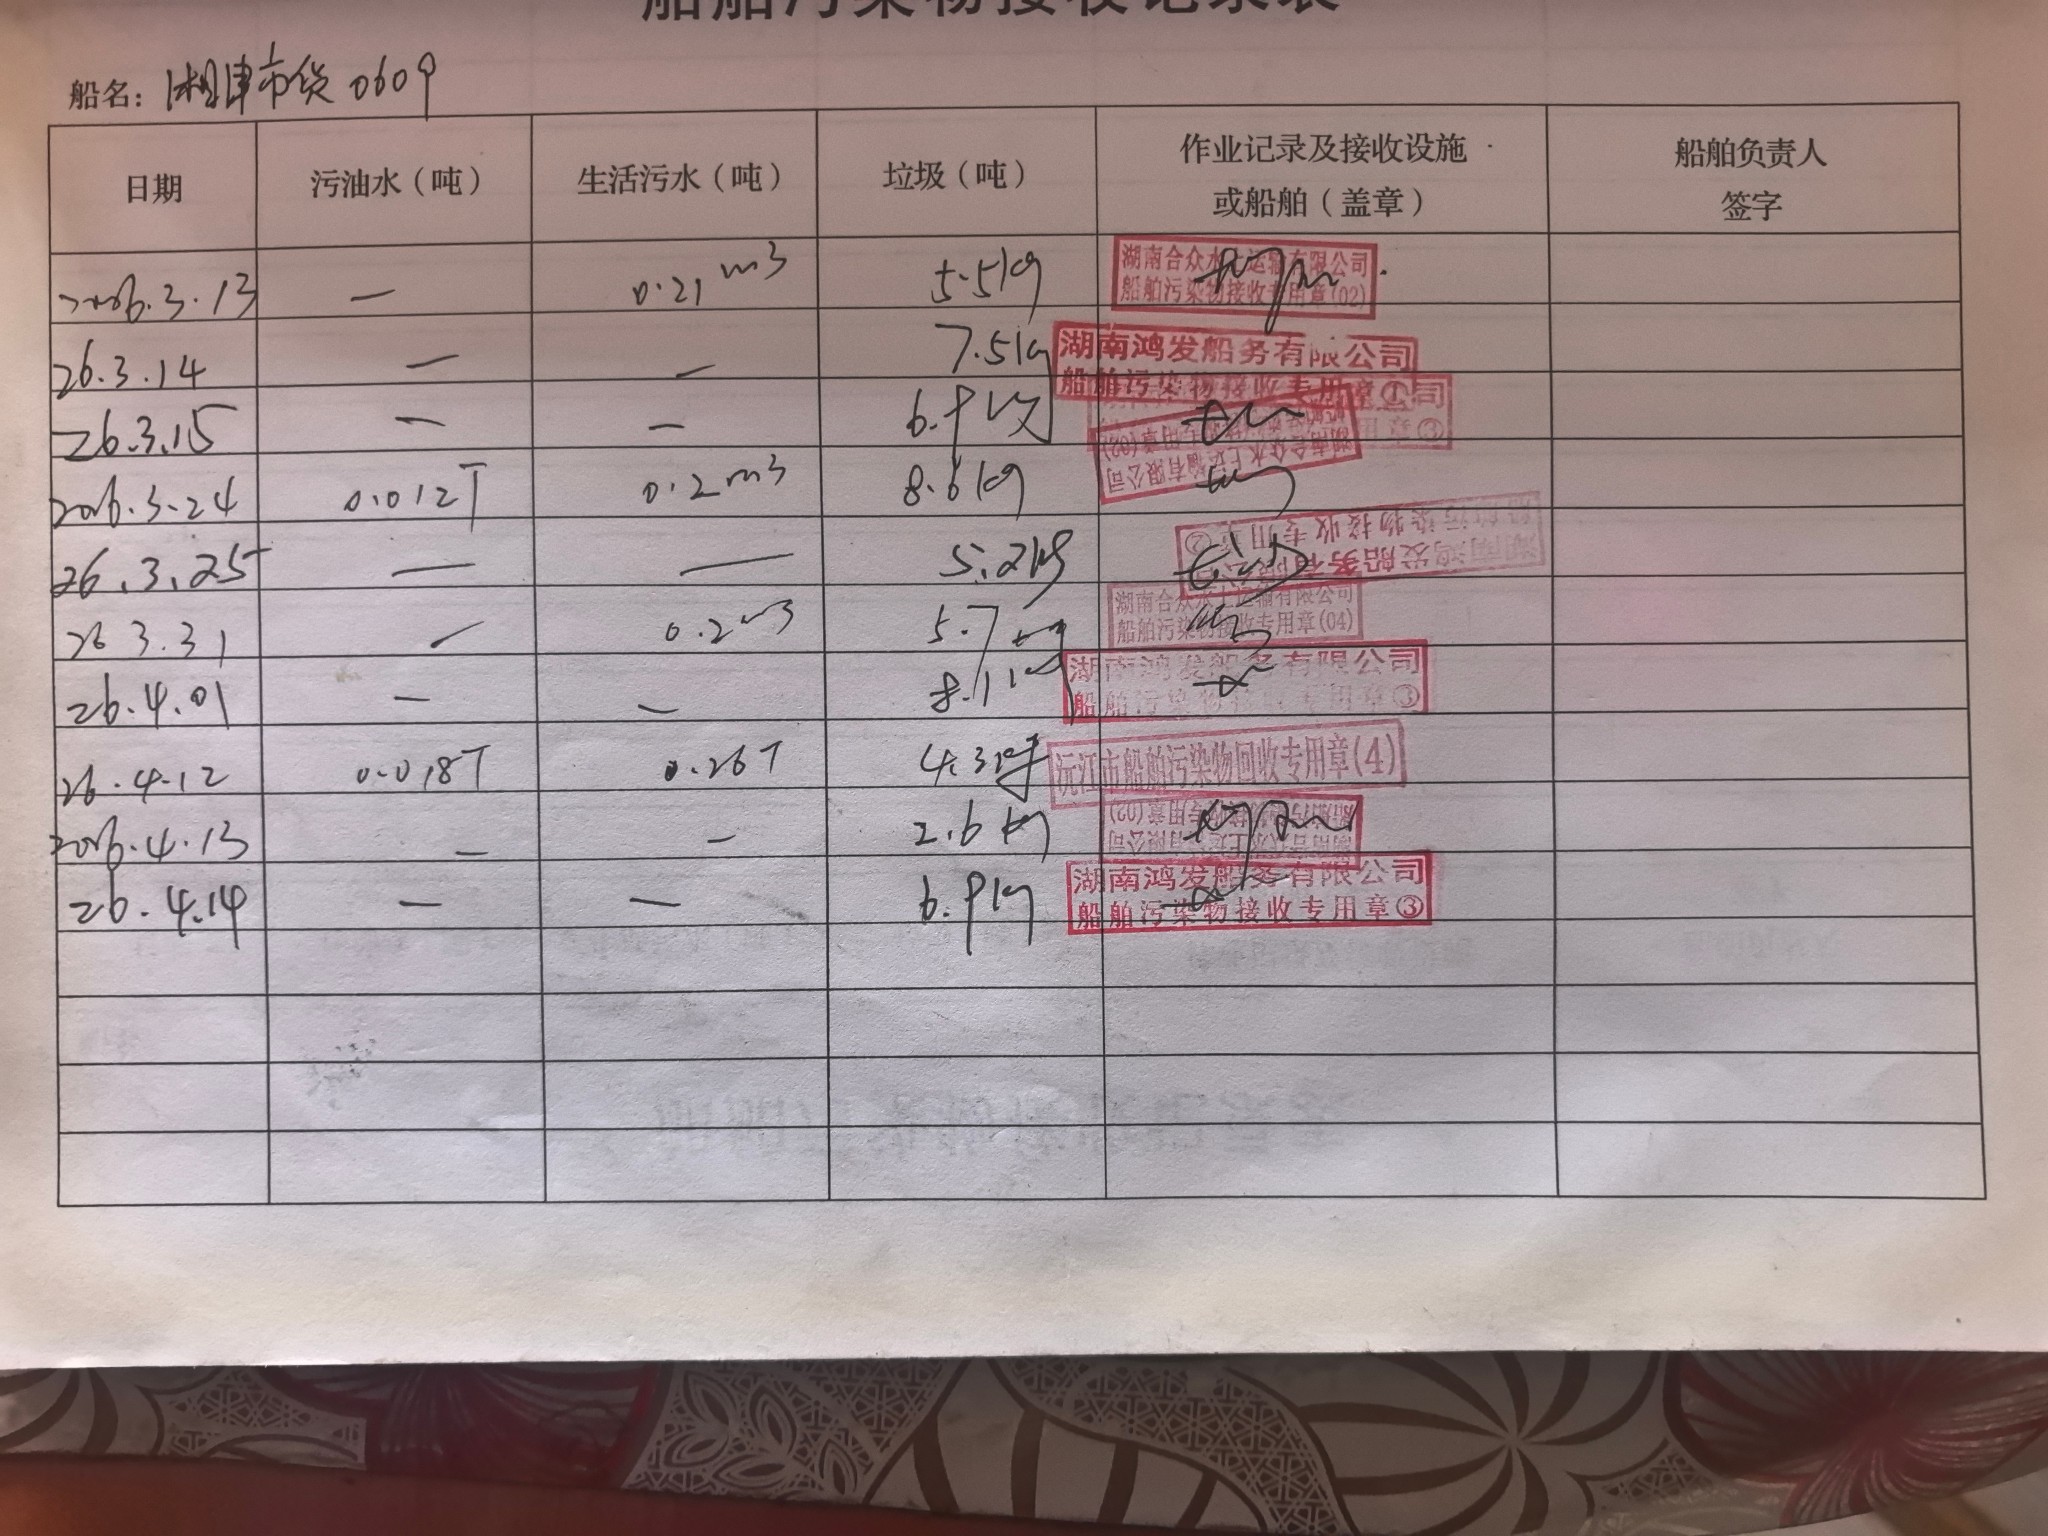 船舶污染物接收记录表
船名：湘津市货0609
日期 污油水（吨） 生活污水（吨） 垃圾（吨） 作业记录及接收设施或船舶（盖章） 船舶负责人签字
2026.3.13 — 0.21m3 5.5kg 湖南合众水上运输有限公司 船舶污染物接收专用章(02)
26.3.14 — — 7.5kg 湖南鸿发船务有限公司 船舶污染物接收专用章①
26.3.15 — — 6.9kg 司 用章③
2026.3.24 0.012T 0.2m3 8.6kg 湖南合众水上运输有限公司 船舶污染物接收专用章(02)
26.3.25 — — 5.2kg 湖南鸿发船务有限公司 船舶污染物接收专用章②
26.3.31 — 0.2m3 5.7kg 湖南合众水上运输有限公司 船舶污染物接收专用章(04)
26.4.01 — — 8.1kg 湖南鸿发船务有限公司 船舶污染物接收专用章③
26.4.12 0.018T 0.26T 4.3kg 沅江市船舶污染物回收专用章(4)
2026.4.13 — — 2.6kg 湖南合众水上运输有限公司 船舶污染物接收专用章(02)
26.4.14 — — 6.9kg 湖南鸿发船务有限公司 船舶污染物接收专用章③